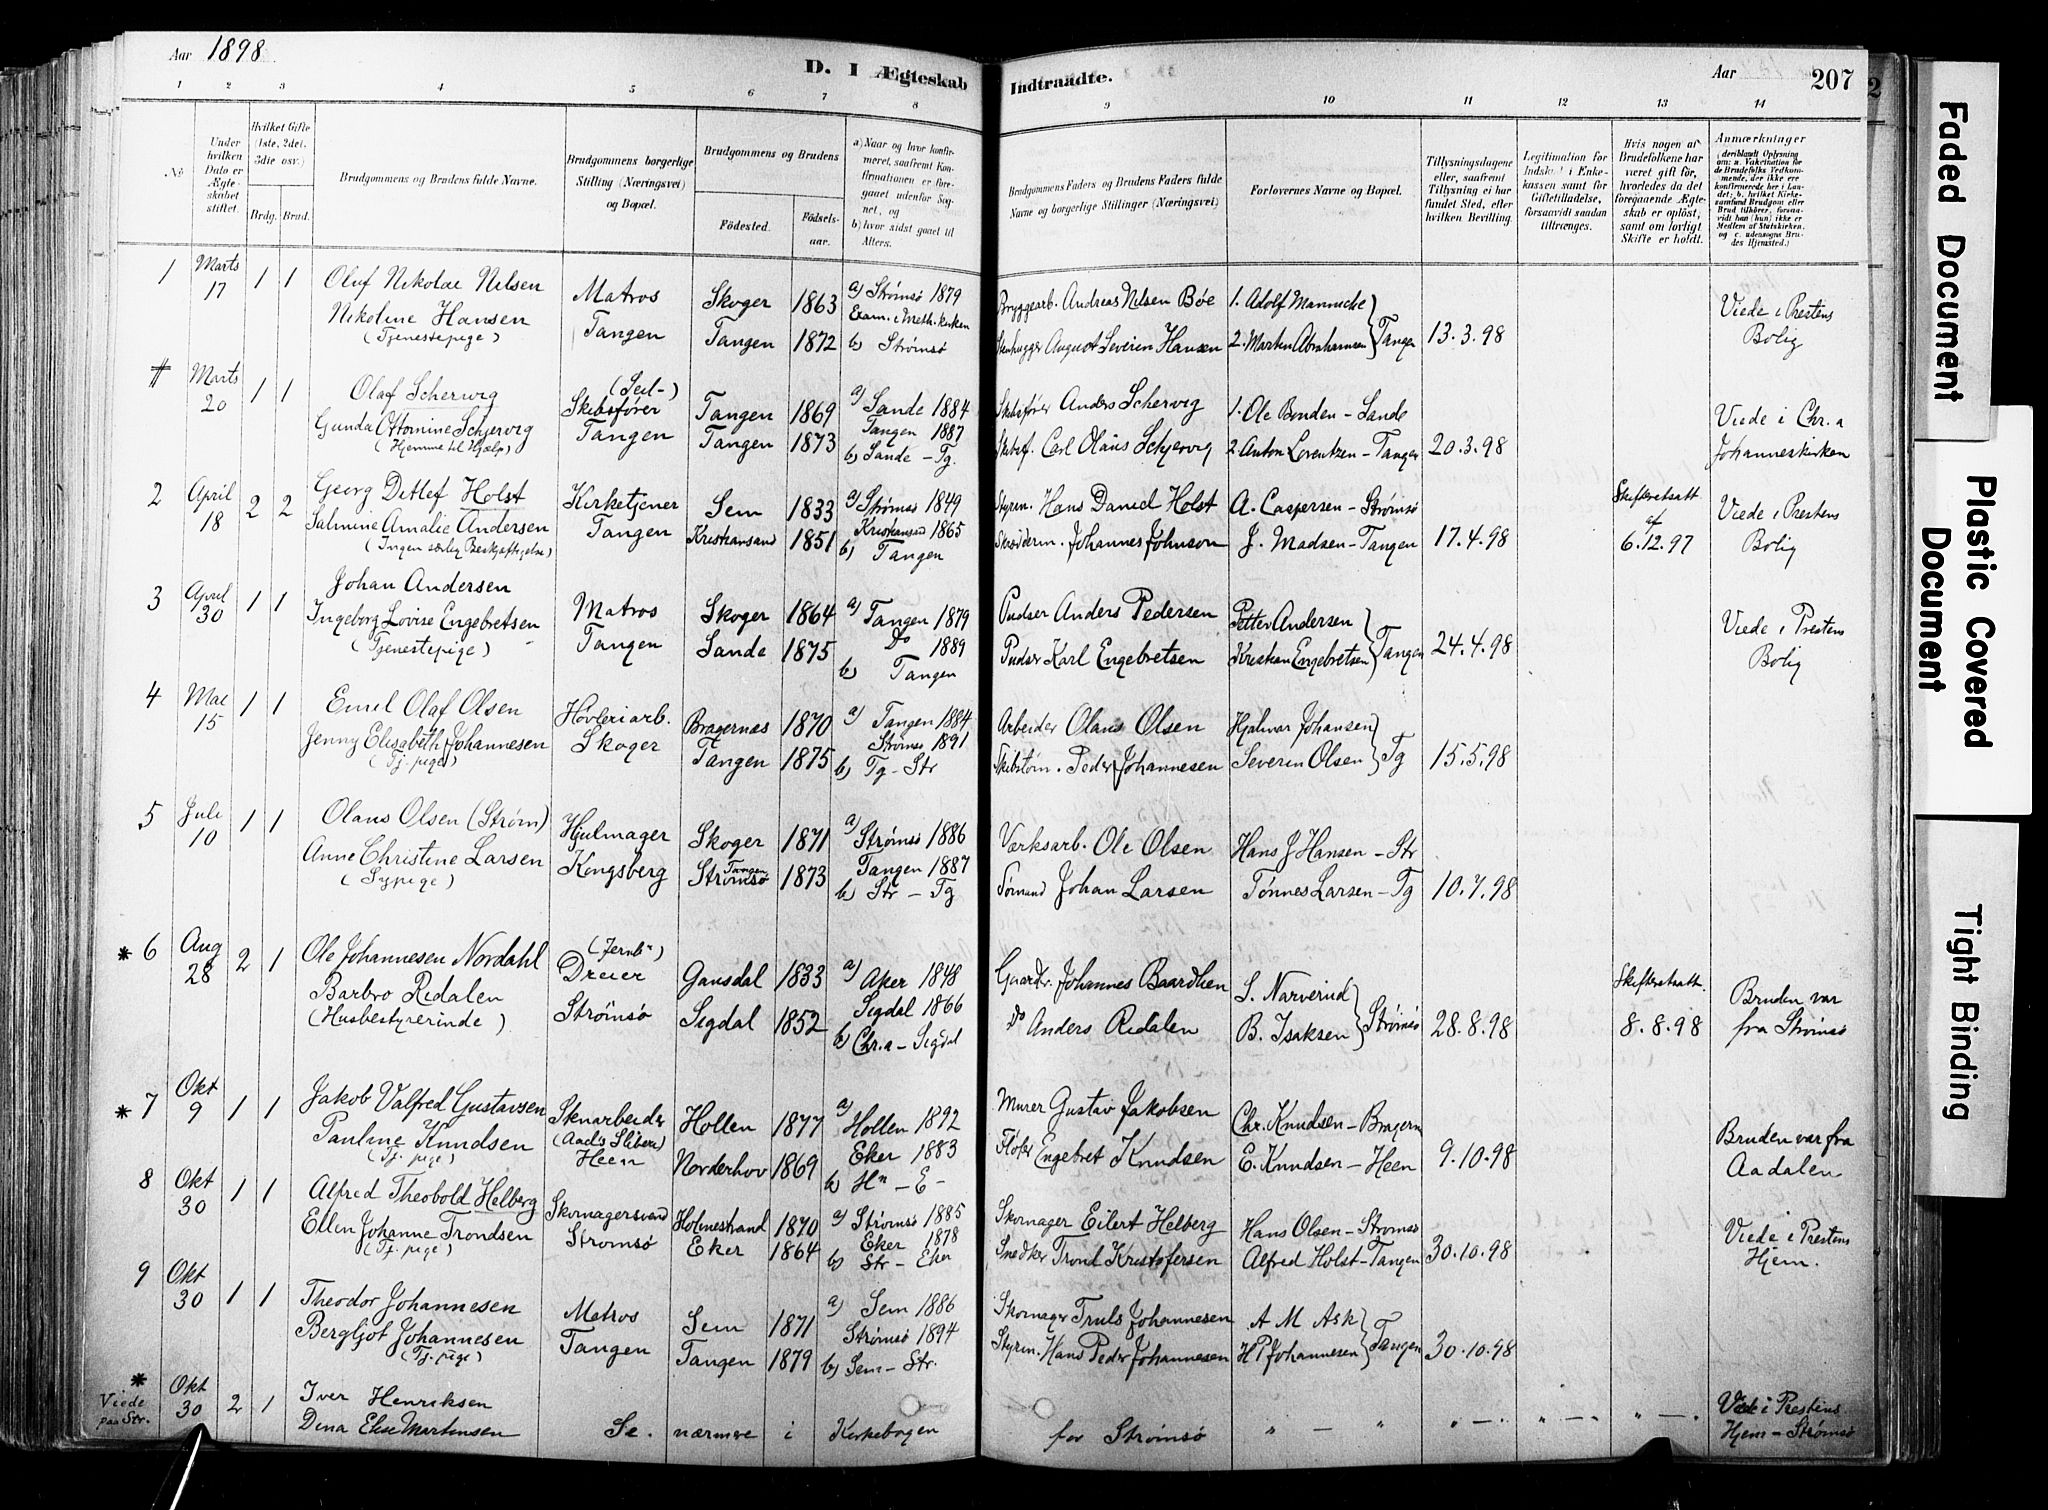 Aar 1898.
D. I Ægteskab Indtraadte.
Aar 207
1 2 3 4 5 6 7 8 9 10 11 12 13 14
No
Under hvilken Dato er Ægteskabet stiftet.
Hvilket Gifte (1ste, 2det, 3die osv.)
Brdg. Brud.
Brudgommens og Brudens fulde Navne.
Brudgommens borgerlige Stilling (Næringsvei) og Bopæl.
Brudgommens og Brudens
Fødested. Fødselsaar.
a) Naar og hvor konfirmeret, saafremt Konfirmationen er foregaaet udenfor Sognet, og
b) hvor sidst gaaet til Alters.
Brudgommens Faders og Brudens Faders fulde Navne og borgerlige Stillinger (Næringsvei)
Forlovernes Navne og Bopæl.
Tillysningsdagene eller, saafremt Tillysning ei har fundet Sted, efter hvilken Bevilling.
Legitimation for Indskud i Enkekassen samt for Giftetilladelse, forsaavidt saadan tiltrænges.
Hvis nogen af Brudefolkene har været gift før, hvorledes da det foregaaende Ægteskab er opløst, samt om lovligt Skifte er holdt.
Anmærkninger (deriblandt Oplysning om: a. Vakcination for de Brudefolks Vedkommende, der ikke ere konfirmerede her i Landet; b. hvilket Kirkesamfund Brudgom eller Brud tilhører, forsaavidt han (hun) ikke er Medlem af Statskirken, og c. udensogns Brudes Hjemsted.)
1 Marts 17 1 1 Oluf Nikolai Nilsen Matros Skoger 1863 a) Strømsø 1879 Bryggearb. Andreas Nilsen Bøe 1. Adolf Mannicke
Nikoline Hansen Tangen Tangen 1872 Exam. i Meth. kirken Stenhugger August Severin Hansen 2. Marten Abrahamsen } Tangen 13.3.98 Viede i Prestens Bolig
(Tjenestepige) b) Strømsø
# Marts 20 1 1 Olaf Scherwig (Seil-) Skibsfører Tangen 1869 a) Sande 1884 Skibsfører Anders Schervig 1. Ole Bonden - Sande
Gunda Ottomine Schjervig Tangen Tangen 1873 Tangen 1887 Skibsf. Carl Olaus Schjervig 2. Anton Lorentzen - Tangen 20.3.98 Viede i Chr.a Johanneskirken
(Hjemme til Hjælp) b) Sande - Tg.
2 April 18 2 2 Georg Detlef Holst Kirketjener Sem 1833 a) Strømsø 1849 Styrm. Hans Daniel Holst A. Caspersen - Strømsø Skifteretsatt af
Salmine Amalie Andersen Tangen Kristiansand 1851 Kristiansand 1865 Skrædderm. Johannes Johnson J. Madsen - Tangen 17.4.98 6.12.97 Viede i Prestens Bolig
(Ingen særlig Beskjæftigelse) b) Tangen
3 April 30 1 1 Johan Andersen Matros Skoger 1864 a) Tangen 1879 Pudser Anders Pedersen Petter Andersen
Ingeborg Lovise Engebretsen Tangen Sande 1875 Do 1889 Pudser Karl Engebretsen Kristian Engebretsen } Tangen 24.4.98 Viede i Prestens Bolig
(Tjenestepige) b) Tangen
4 Mai 15 1 1 Emil Olaf Olsen Høvleriarb. Bragernæs 1870 a) Tangen 1884 Arbeider Olaus Olsen Hjalmar Johansen
Jenny Elisabeth Johannesen Skoger Tangen 1875 Strømsø 1891 Skibstøm. Peder Johannesen Severin Olsen } Tg 15.5.98
(Tj. pige) b) Tg - Str
5 Juli 10 1 1 Olaus Olsen (Strøm) Hjulmager Skoger 1871 a) Strømsø 1886 Værksarb. Ole Olsen Hans J Hansen - Str
Anne Christine Larsen Kongsberg Strømsø Tangen 1873 Tangen 1887 Sømand Johan Larsen Tønnes Larsen - Tg 10.7.98
(Sypige) b) Str - Tg
* 6 Aug 28 2 1 Ole Johannesen Nordahl (Jernb.) Dreier Gausdal 1833 a) Aker 1848 Gaardbr. Johannes Baardsen S. Narverud Skifteretsatt.
Barbro Redalen Strømsø Sigdal 1852 Sigdal 1866 Do Anders Redalen B. Isaksen } Strømsø 28.8.98 8.8.98 Bruden var fra Strømsø
(Husbestyrerinde) b) Chr.a - Sigdal
* 7 Okt 9 1 1 Jakob Valfred Gustavsen Stenarbeider Hollen 1877 a) Hollen 1892 Murer Gustav Jakobsen Chr. Knudsen - Bragern
Pauline Knudsen (Aad's Sliberi) Heen Norderhov 1869 Eker 1883 Fløter Engebret Knudsen E. Knudsen - Heen 9.10.98 Bruden var fra Aadalen
(Tj. pige) b) Hn - E -
8 Okt 30 1 1 Alfred Theobold Helberg Skomagersvend Holmestrand 1870 a) Strømsø 1885 Skomager Eilert Helberg Hans Olsen - Strømsø
Ellen Johanne Trondsen Strømsø Eker 1864 Eker 1878 Snedker Trond Kristofersen Alfred Holst - Tangen 30.10.98 Viede i Prestens Hjem.
(Tj. pige) b) Str - Eker
9 Okt 30 1 1 Theodor Johannesen Matros Sem 1871 a) Sem 1886 Skomager Truls Johannesen A M Ask
Bergljot Johannesen Tangen Tangen 1879 Strømsø 1894 Styrm. Hans Peder Johannesen H P Johannesen } Tangen 30.10.98
(Tj. pige) b) Sem - Str.
* Viede paa Str. Okt 30 2 1 Iver Henriksen
Dina Elise Martinsen Se. nærmere i Kirkebogen for Strømsø " — " " — " " — " Viede i Prestens Hjem - Strømsø
Faded Document
Plastic Covered Document
Tight Binding